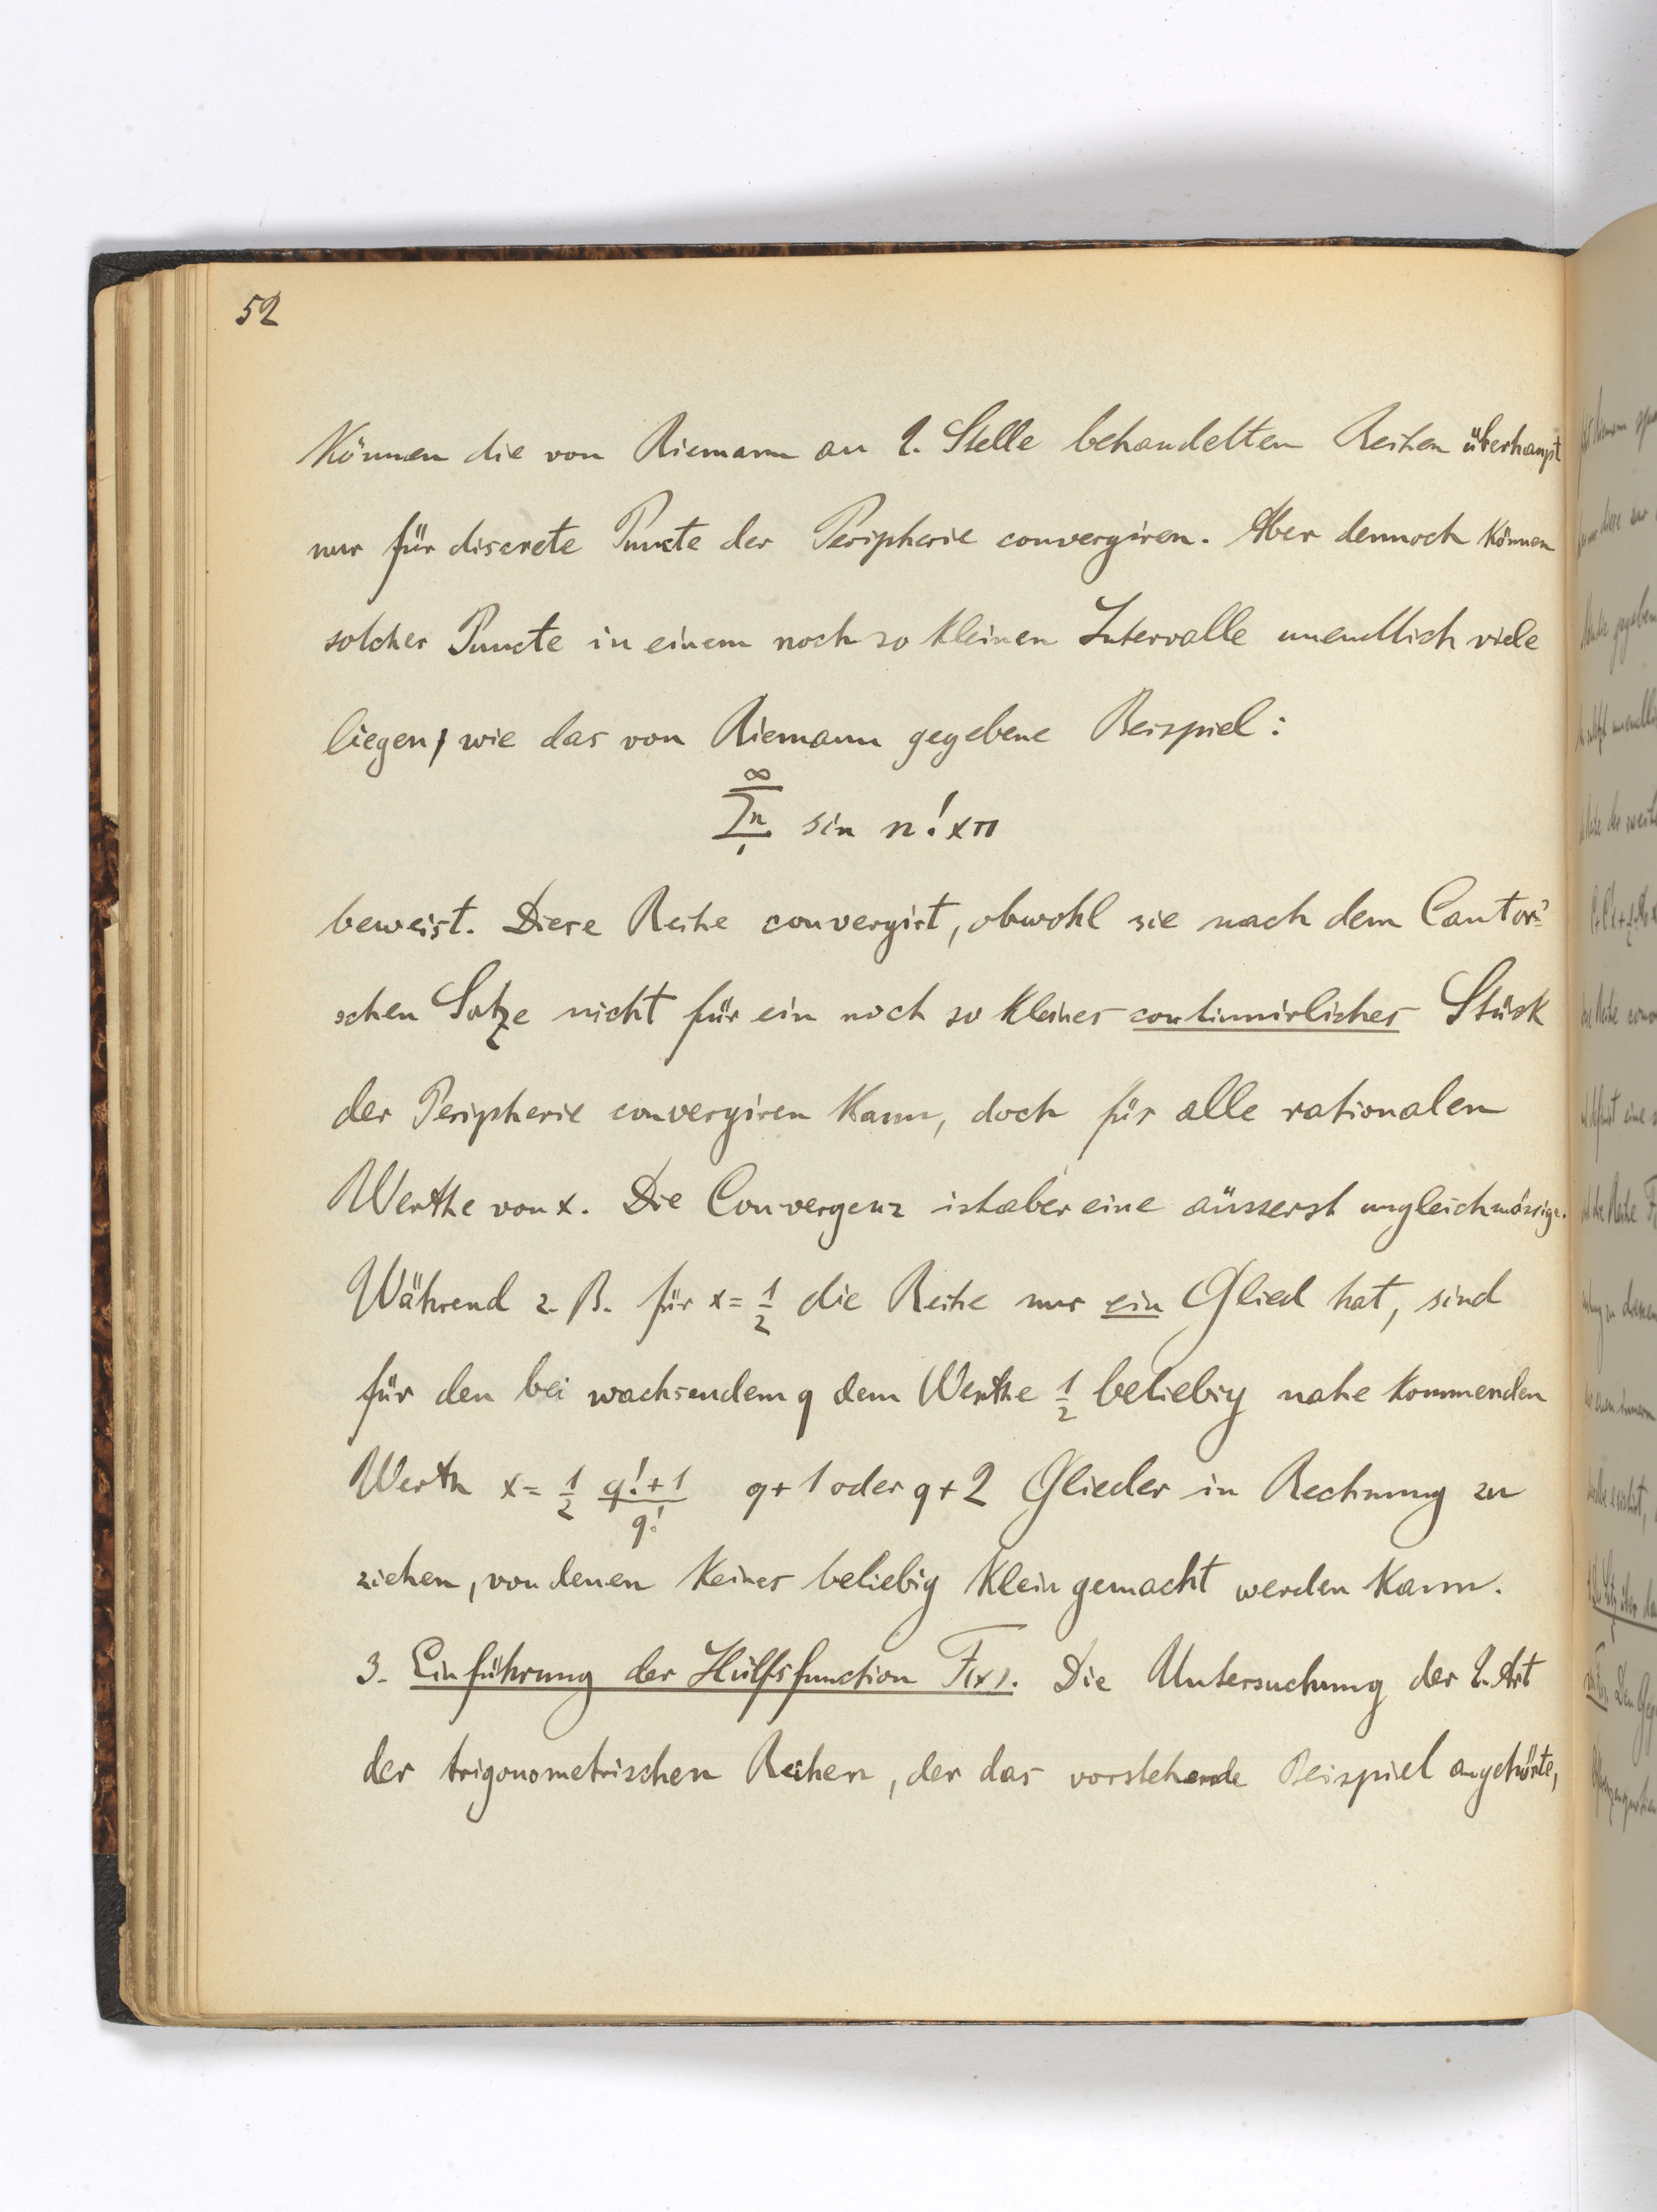 52
können die von Riemann an 2. Stelle behandelten Reihen überhaupt
nur für discrete Puncte der Peripherie convergiren. Aber dennoch können
solcher Puncte in einem noch so kleinen Intervalle unendlich viele
liegen, wie das von Riemann gegebene Beispiel:
∞
∑n sin n! xπ
1
beweist. Diese Reihe convergirt, obwohl sie nach dem Cantor'-
schen Satze nicht für ein noch so kleines continuirliches Stück
der Peripherie convergiren kann, doch für alle rationalen
Werthe von x. Die Convergenz ist aber eine äusserst ungleichmässige.
Während z. B. für x = 1/2 die Reihe nur ein Glied hat, sind
für den bei wachsendem q dem Werthe 1/2 beliebig nahe kommenden
Werth x = 1/2 (q! + 1)/q! q + 1 oder q + 2 Glieder in Rechnung zu
ziehen, von denen keines beliebig klein gemacht werden kann.
3. Einführung der Hülfsfunction F(x). Die Untersuchung der 2. Art
der trigonometrischen Reihen, der das vorstehende Beispiel angehörte,